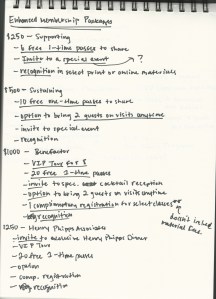 Enhanced Membership Packages
$250 - Supporting
- 6 free 1-time passes to share
- Invite to a special event
?
- recognition in select print or online materials
$500 - Sustaining
- 10 free one-time passes to share
- option to bring 2 guests on visits anytime
- invite to special event
- recognition
$1000 - Benefactor
- VIP Tour for 8
- 20 free 1-time passes
- invite to spec. cocktail reception
- option to bring 2 guests on visits anytime
- 1 complimentary registration for select classes
or
doesn't include material fees
- recognition
1250 - Henry Phipps Associates
- invite to exclusive Henry Phipps Dinner
- VIP Tour
- 20 free 1-time passes
- option
- comp. registration
- recognition